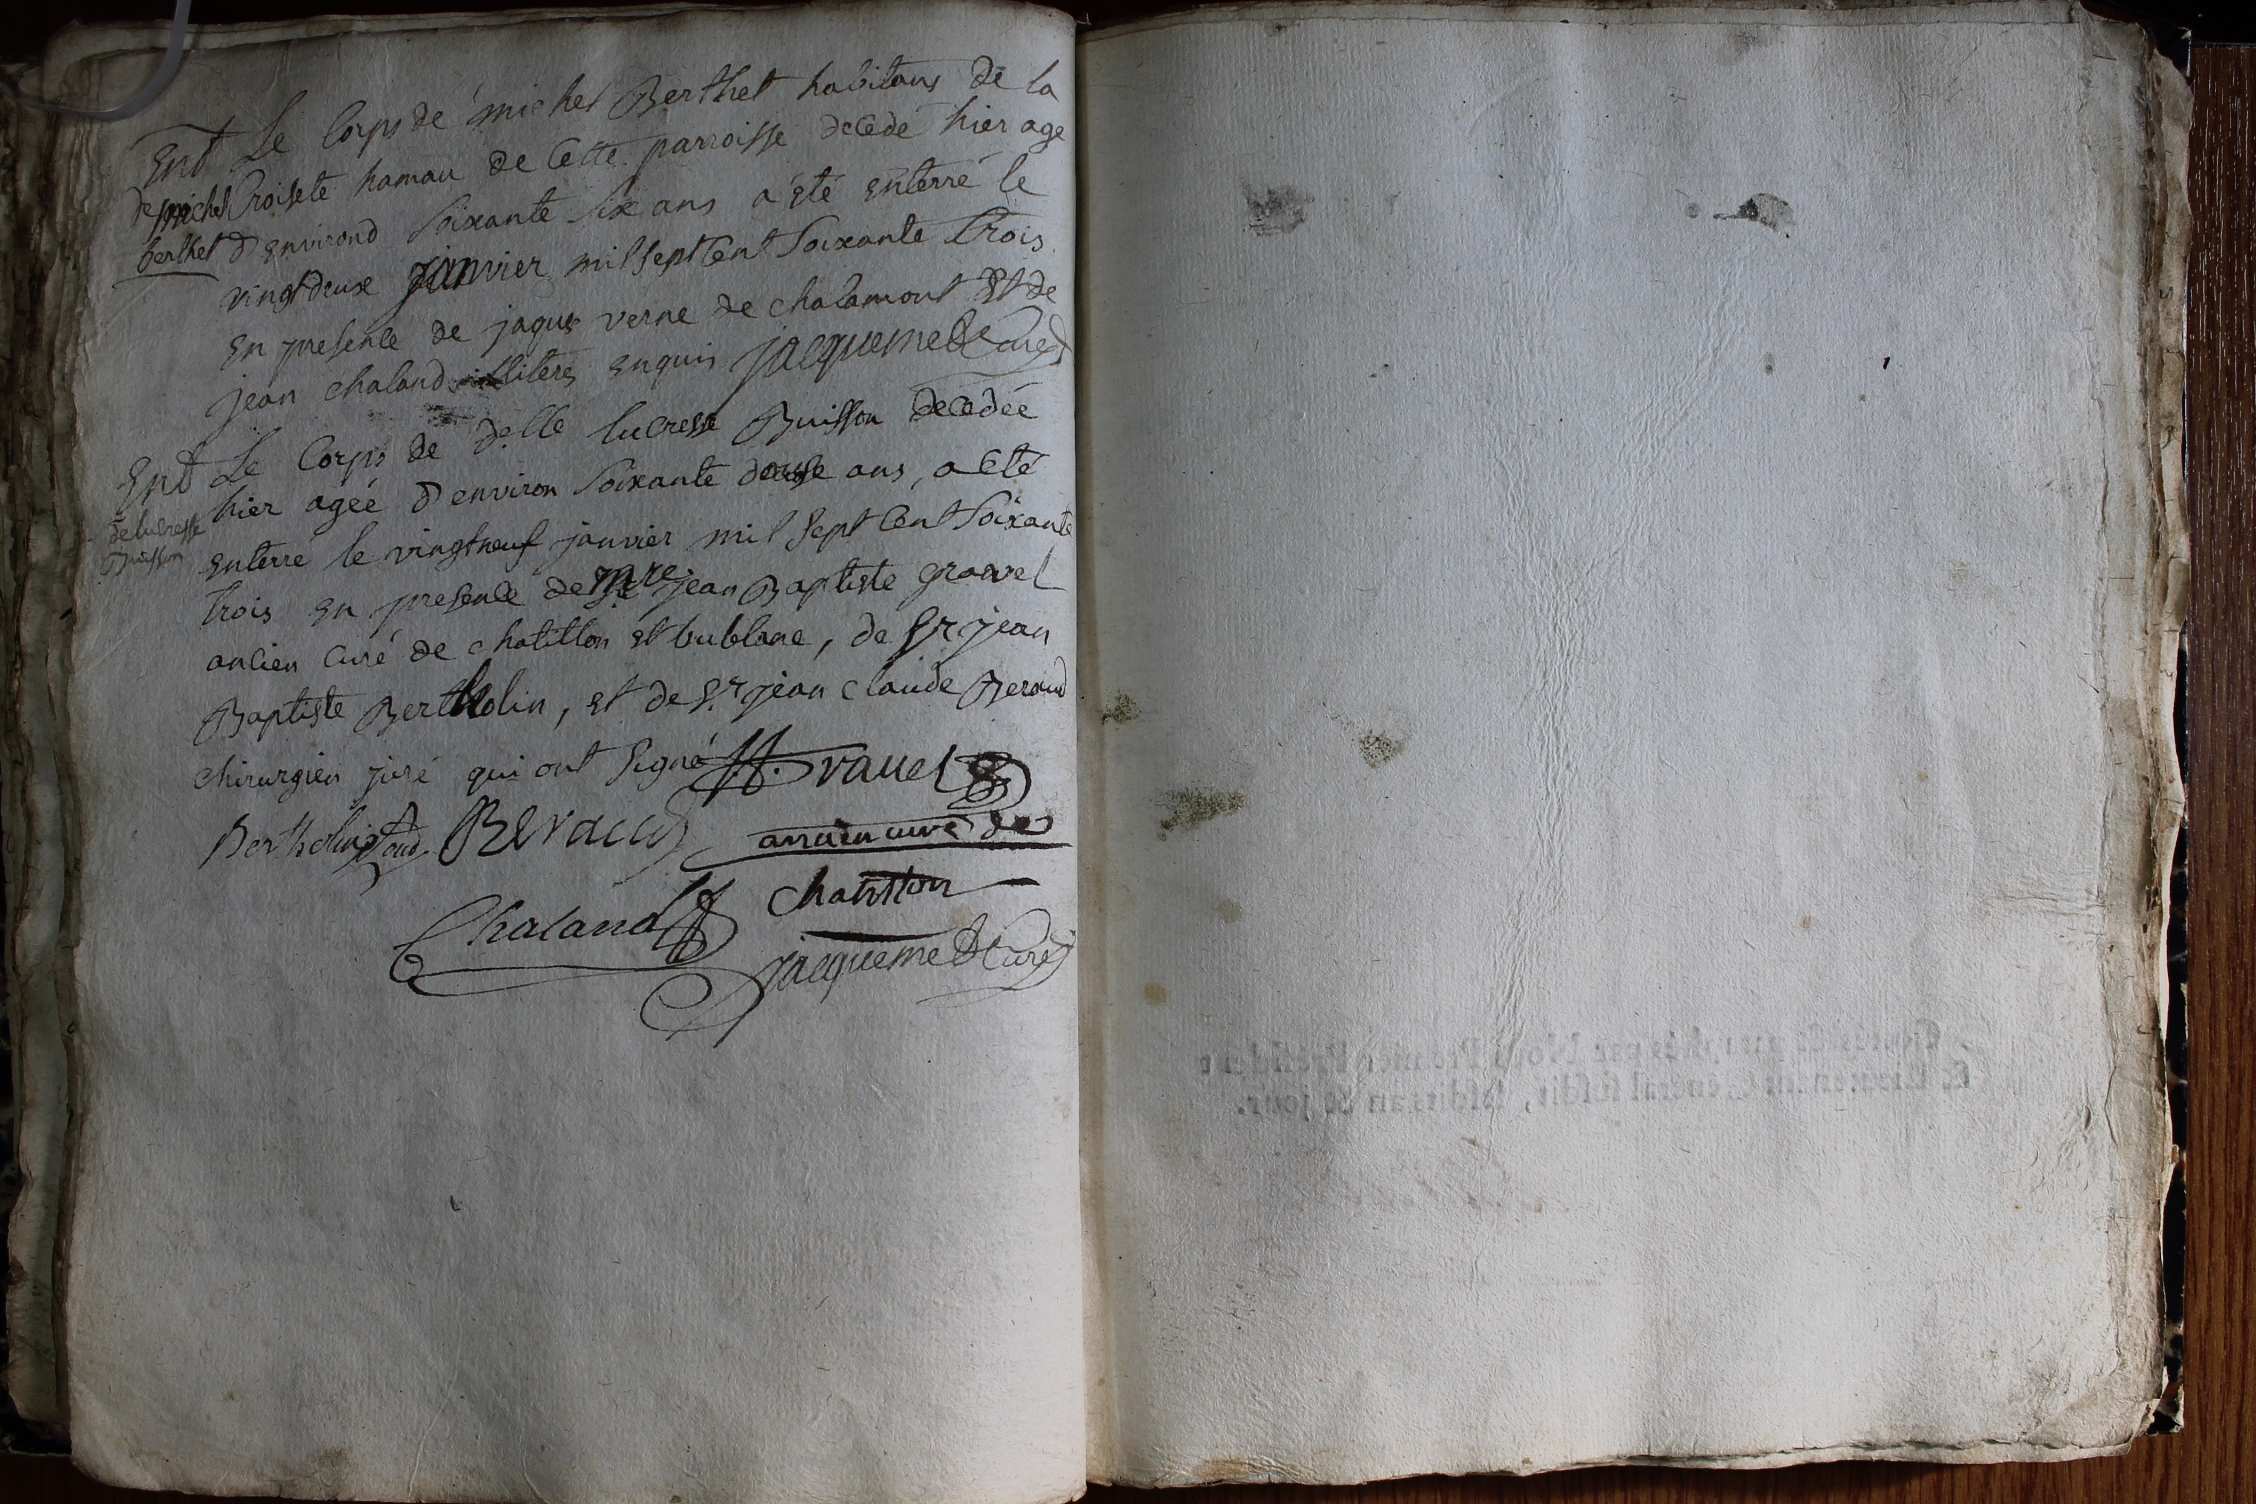 Ent Le Corps de michel Berthet habitans de la
de michel berthet
Croisete hamau de Cette parroisse decedé hier age
d'environd soixante six ans a été enterré le
vingtdeux janvier mil sept Cent soixante trois
en presence de jaque verne de chalamont et de
jean chaland illiterés enquis jacquemet Curé
Ent Le Corps de d.elle lucresse Buisson decedée
de lucresse Buisson
hier ageé d'environ soixante ans, a été
enterré le vingtneuf janvier mil sept Cent soixante
trois en presence de mre jean Baptiste gravel
ancien curé de chatillon et bublane, de Sr jean
Baptiste Bertholin, et de Sr jean claude Beraud
chirurgien juré qui ont signé
Bertholin Beraud
ancien curé de
chatillon
Chaland
jacquemet Curé
Cottés & paraphés par Nous Premier Président
& Lieutenant Général susdit, lesdits an & jour.